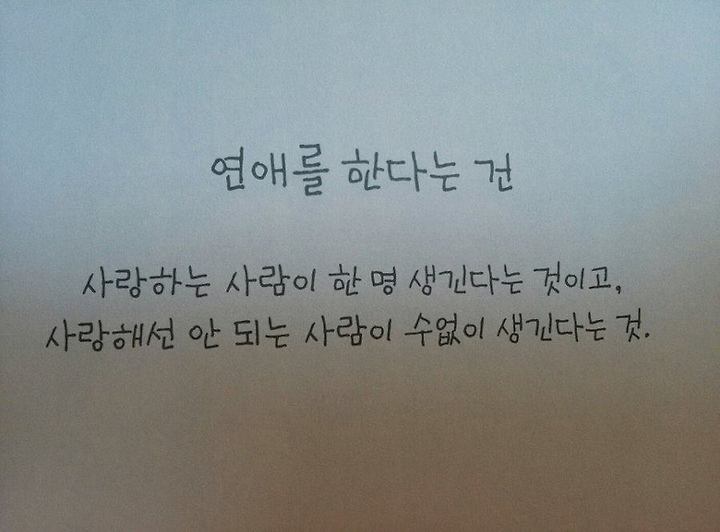 연애를 한다는 건
사랑하는 사람이 한 명 생긴다는 것이고,
사랑해선 안 되는 사람이 수없이 생긴다는 것.